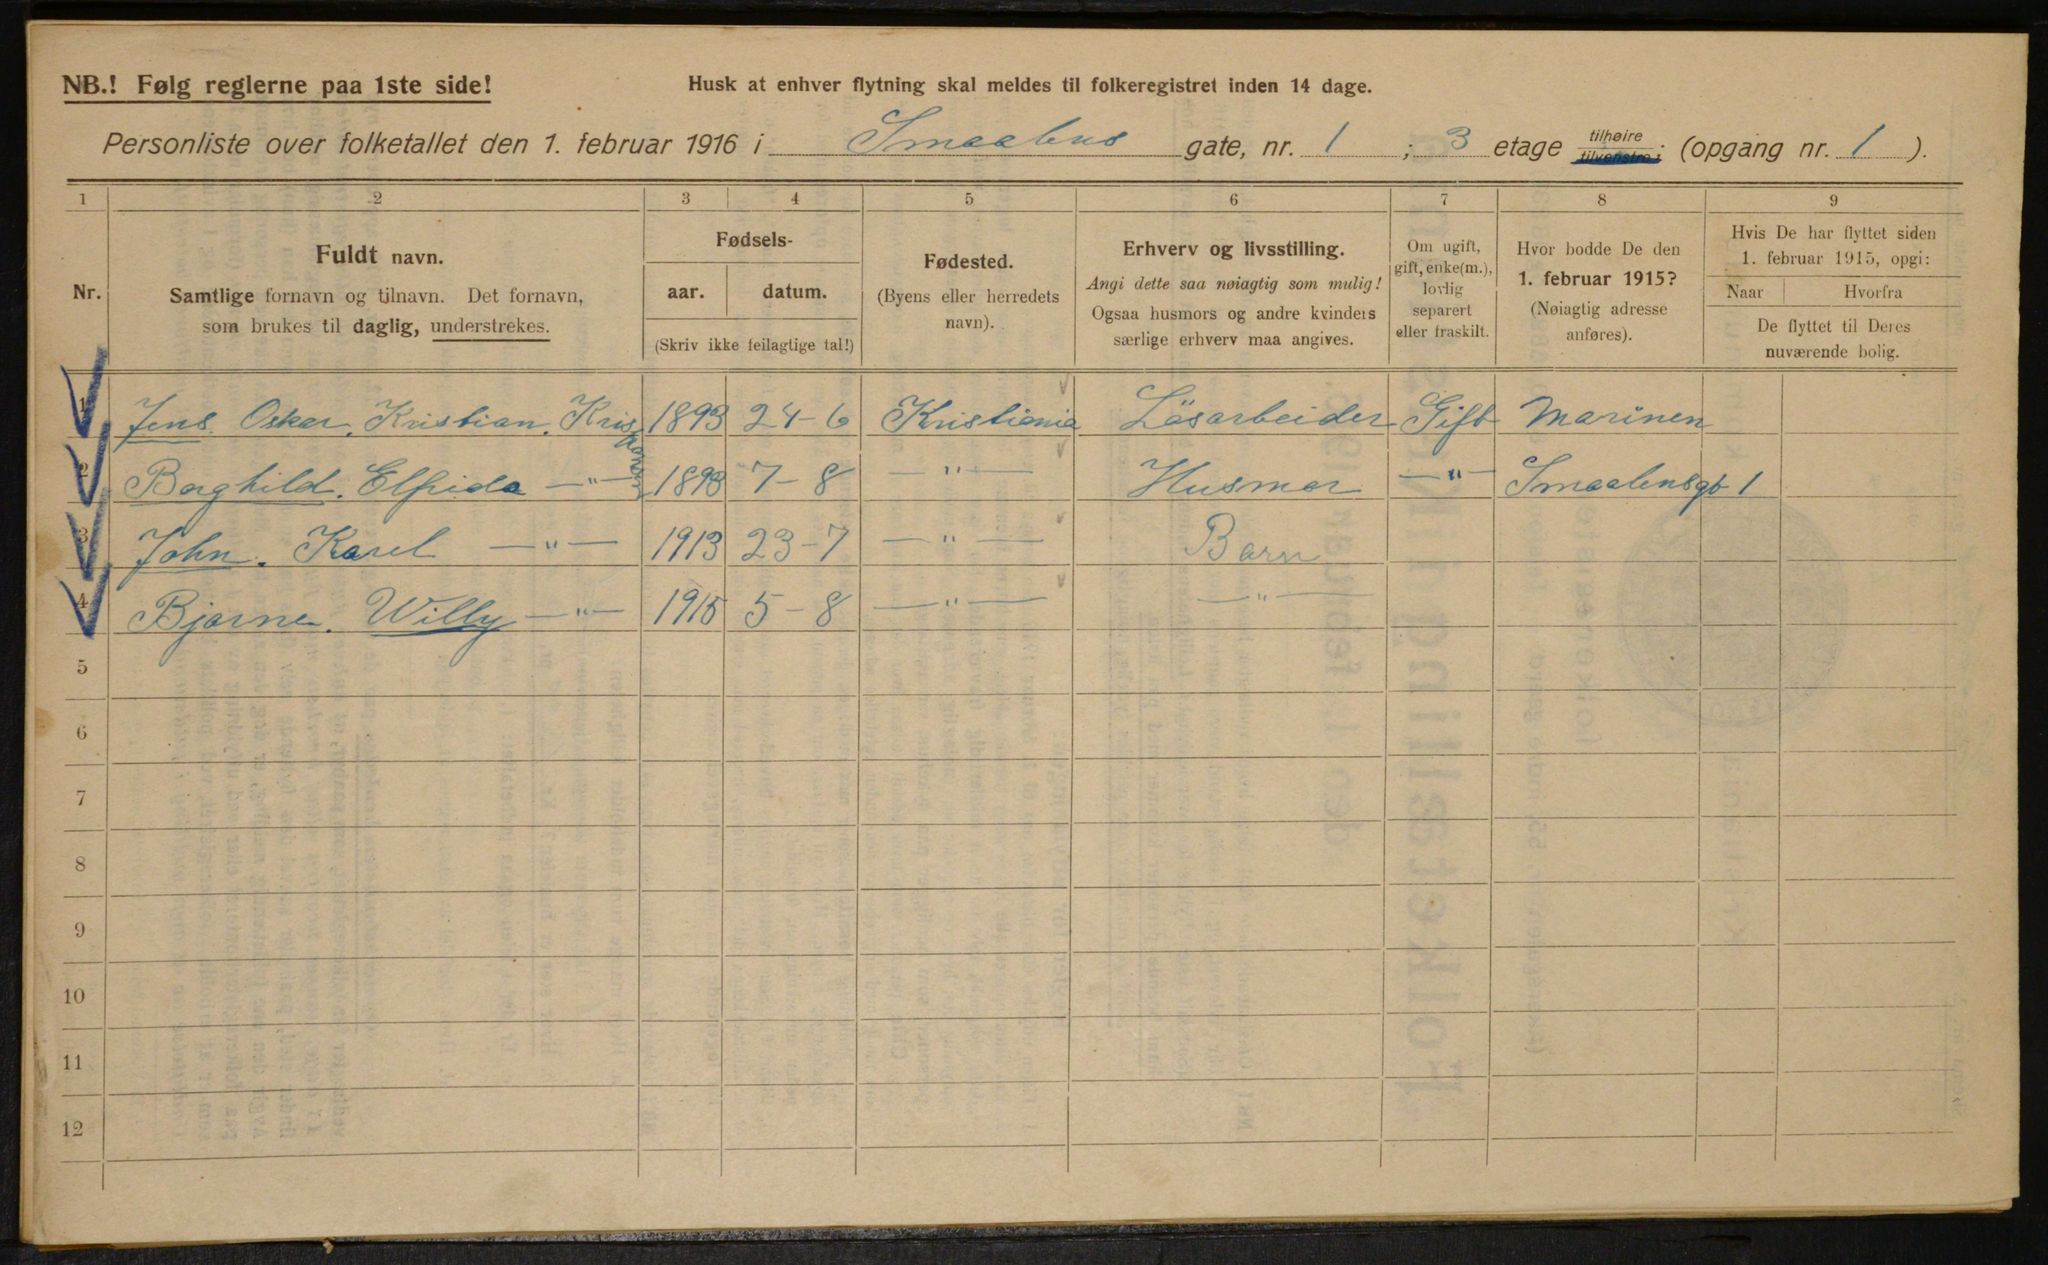 NB.! Følg reglerne paa 1ste side! Husk at enhver flytning skal meldes til folkeregistret inden 14 dage.
Personliste over folketallet den 1. februar 1916 i Smaalens gate, nr. 1 ; 3 etage tilhøire tilvenstre; (opgang nr. 1 ).
1 2 3 4 5 6 7 8 9
Nr.
Fuldt navn.
Samtlige fornavn og tilnavn. Det fornavn,
som brukes til daglig, understrekes.
Fødsels-
aar. datum.
(Skriv ikke feilagtige tal!)
Fødested.
(Byens eller herredets
navn).
Erhverv og livsstilling.
Angi dette saa nøiagtig som mulig!
Ogsaa husmors og andre kvinders
særlige erhverv maa angives.
Om ugift,
gift, enke(m.),
lovlig
separert
eller fraskilt.
Hvor bodde De den
1. februar 1915?
(Nøiagtig adresse
anføres).
Hvis De har flyttet siden
1. februar 1915, opgi:
Naar Hvorfra
De flyttet til Deres
nuværende bolig.
1 Jens Oskar. Kristian. Kris 1893 24-6 Kristiania Løsarbeider Gift Marinen
2 Borghild. Elfrida —"— 1893 7-8 —"— Husmor —"— Smaalensgt 1
3 John. Karel —"— 1913 23-7 —"— Barn
4 Bjarne. Willy —"— 1915 5-8 —"— —"—
5
6
7
8
9
10
11
12